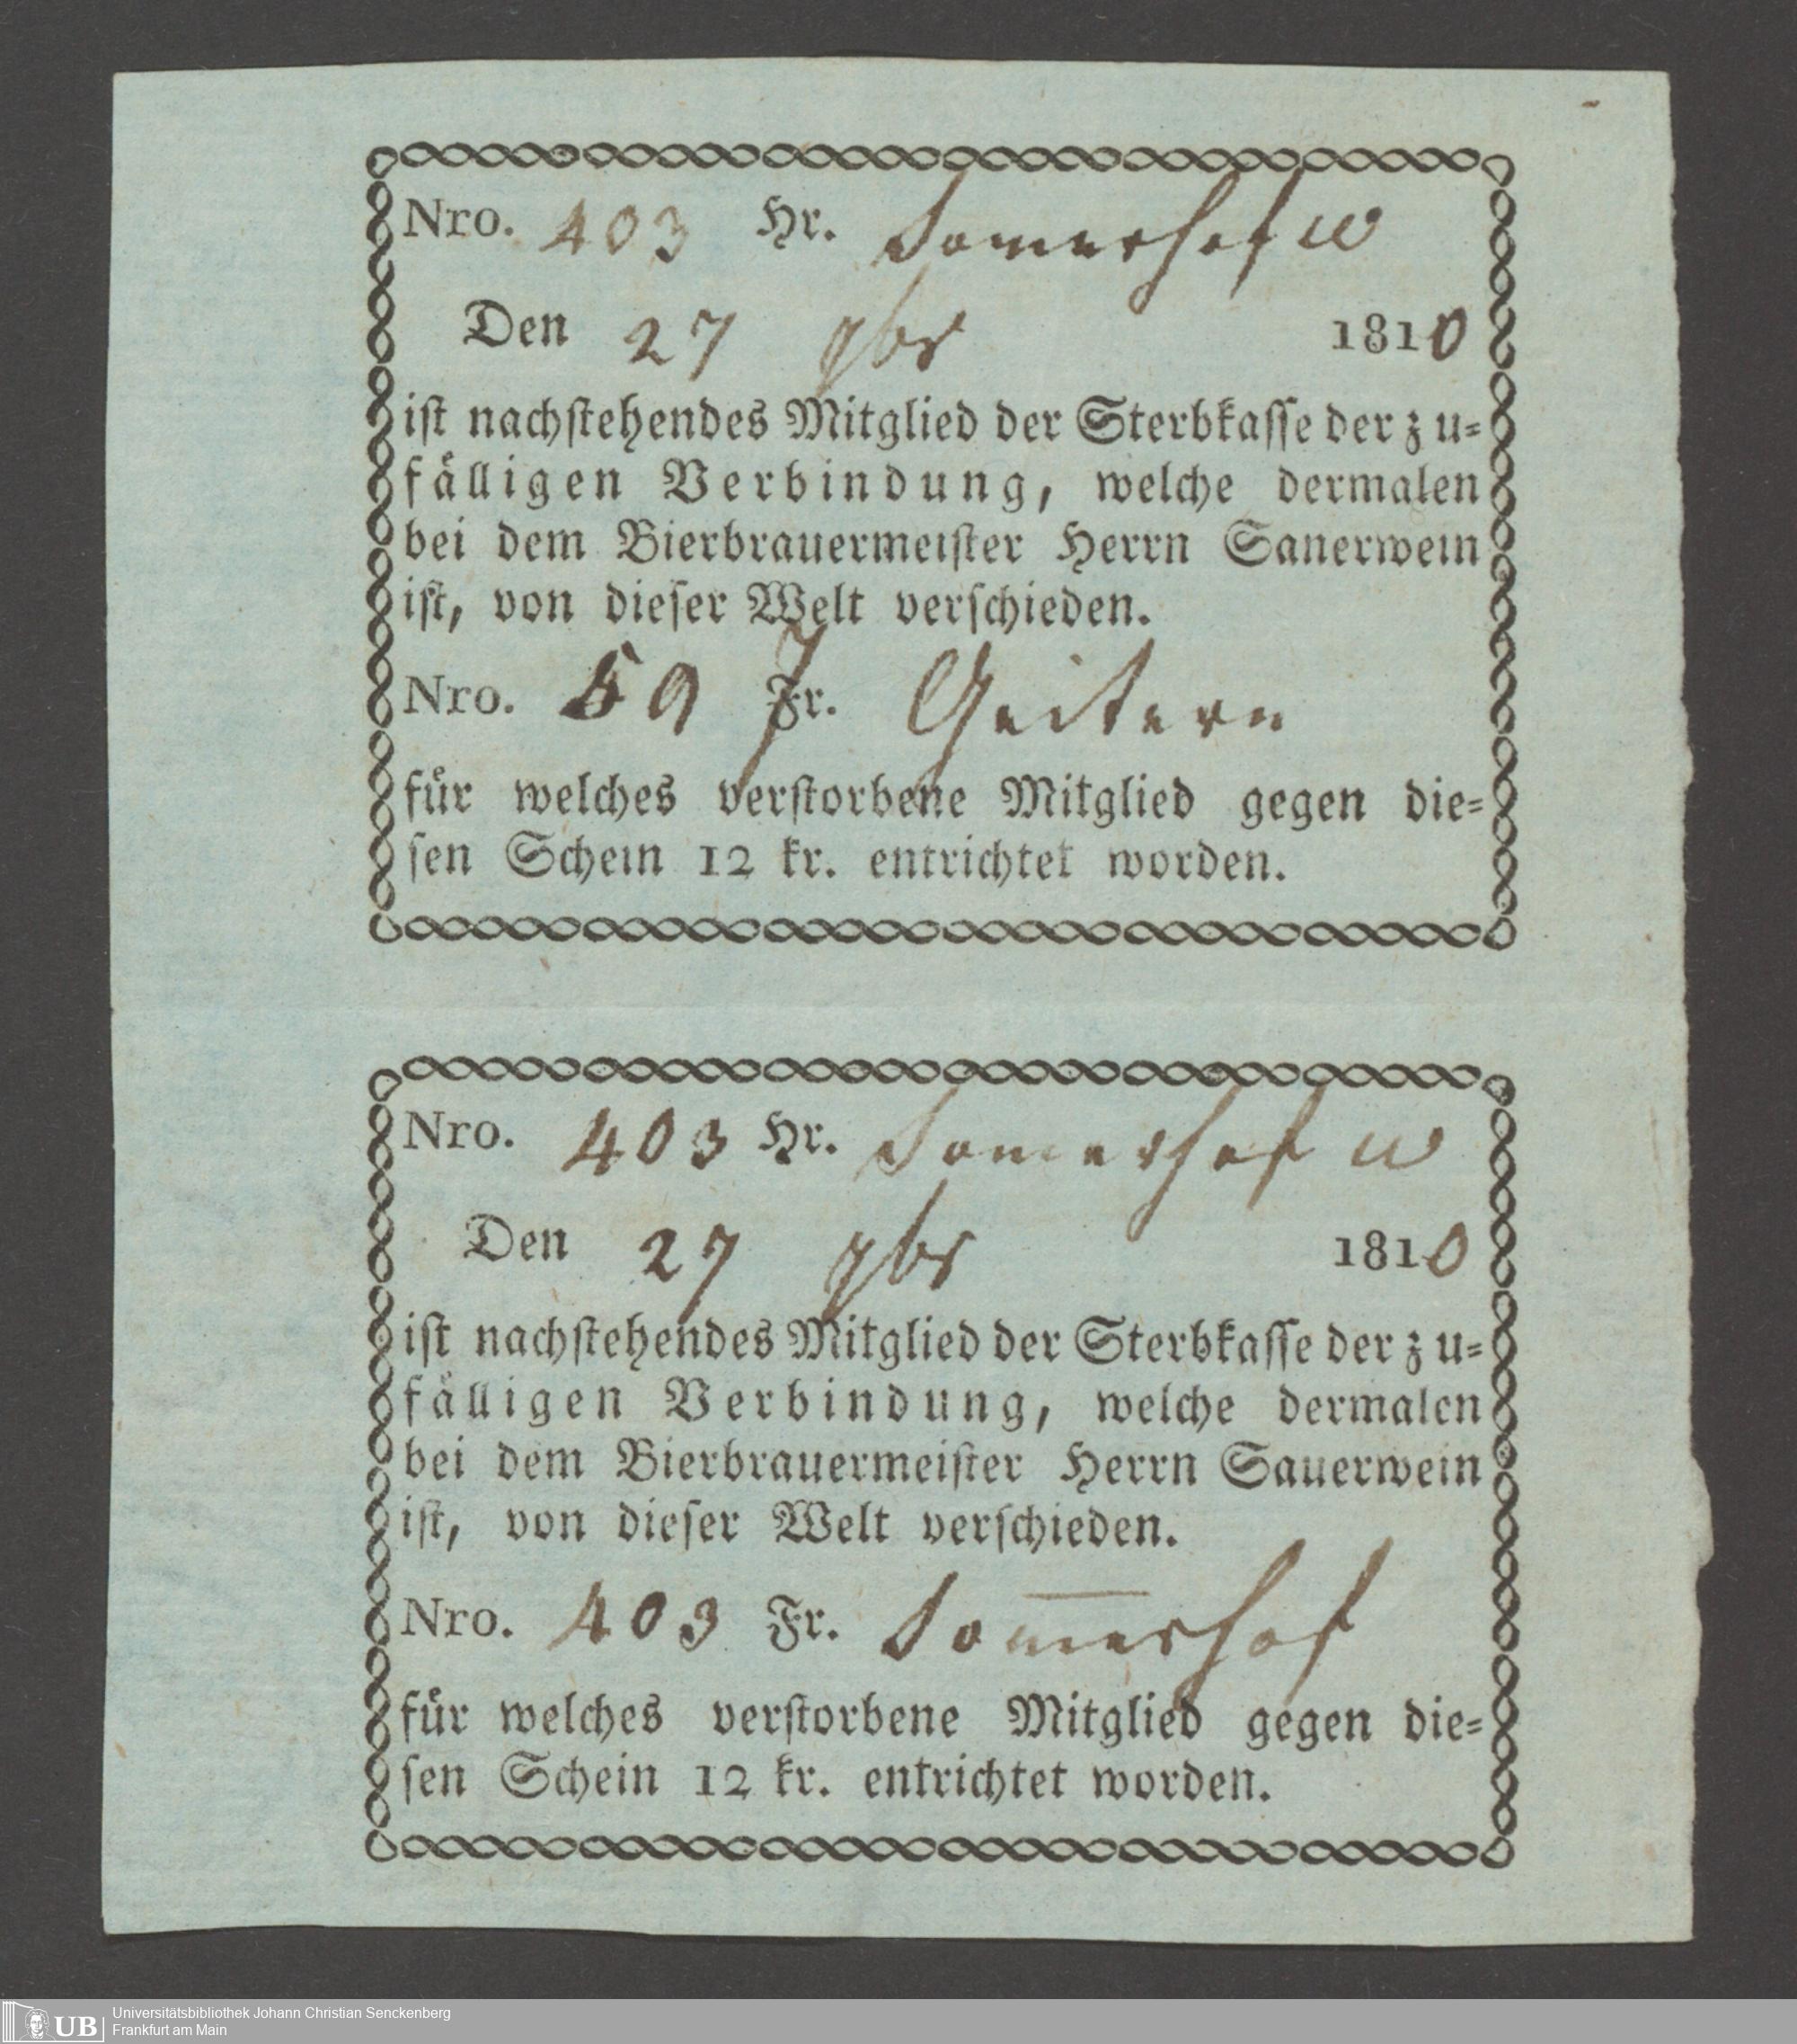 Nro. 403 Hr. Somerhof W
Den 27 9br 1810
iſt nachſtehendes Mitglied der Sterbkaſſe der zu-
fälligen Verbindung, welche dermalen
bei dem Bierbrauermeiſter Herrn Sanerwein
iſt, von dieſer Welt verſchieden.
Nro. 59 Fr. Geitern
für welches verſtorbene Mitglied gegen die-
ſen Schein 12 kr. entrichtet worden.
Nro. 403 Hr. Somerhof W
Den 27 9br 1810
iſt nachſtehendes Mitglied der Sterbkaſſe der zu-
fälligen Verbindung, welche dermalen
bei dem Bierbrauermeiſter Herrn Sauerwein
iſt, von dieſer Welt verſchieden.
Nro. 403 Fr. Som̅erhof
für welches verſtorbene Mitglied gegen die-
ſen Schein 12 kr. entrichtet worden.
UB Universitätsbibliothek Johann Christian Senckenberg
Frankfurt am Main